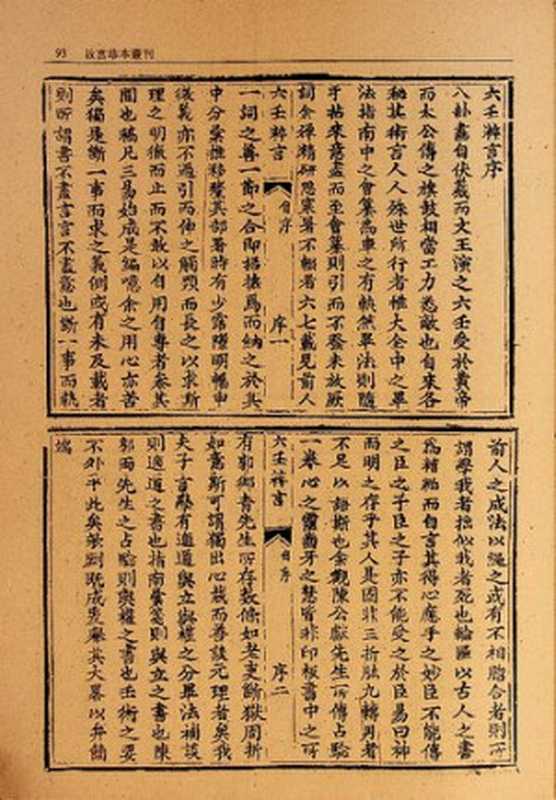 93 故宮珍本叢刊
六壬粹言序
八卦畫自伏羲而文王演之六壬受於黃帝
而太公傳之旗鼓相當工力悉敵也自來各
秘其術言人人殊世所行者惟大全中之畢
法指南中之會纂為車之有軼然畢法則隨
手拈來意盡而至會纂則引而不發未放厥
詞余殫精研思寒暑不輟者六七載見前人
六壬粹言 自序 序一
一詞之善一節之合即搭為而納之於其
中分彙推移彙其部署時有少露隱明暢申
後義亦不過引而伸之觸類而長之以求斯
理之明徹而止而不敢以自用自專者參其
間也稿凡三易始成是編噫余之用心亦苦
矣獨是斷一事而求之義例或有未及載者
則所謂書不盡言言不盡意也斷一事而執
前人之成法以繩之或有不相脗合者則所
謂學我者拙似我者死也輪匾以古人之書
為糟粕而自言其得心應手之妙臣不能傳
之臣之子臣之子亦不能受之於臣易曰神
而明之存乎其人是固非三折肱九轉丹者
不足以語斯也余觀陳公獻先生所傳占驗
一卷心之靈齒牙之慧皆非印板書中之所
六壬粹言 自序 序二
有郭御青先生所存數條如老吏斷獄周折
如意斯可謂獨出心裁而善談元理者矣我
夫子言學有適道與立與權之分畢法補談
則適道之書也指南彙箋則與立之書也陳
郭兩先生之占驗則與權之書也壬術之要
不外乎此矣欽劂既成爰舉其大畧以弁簡
端